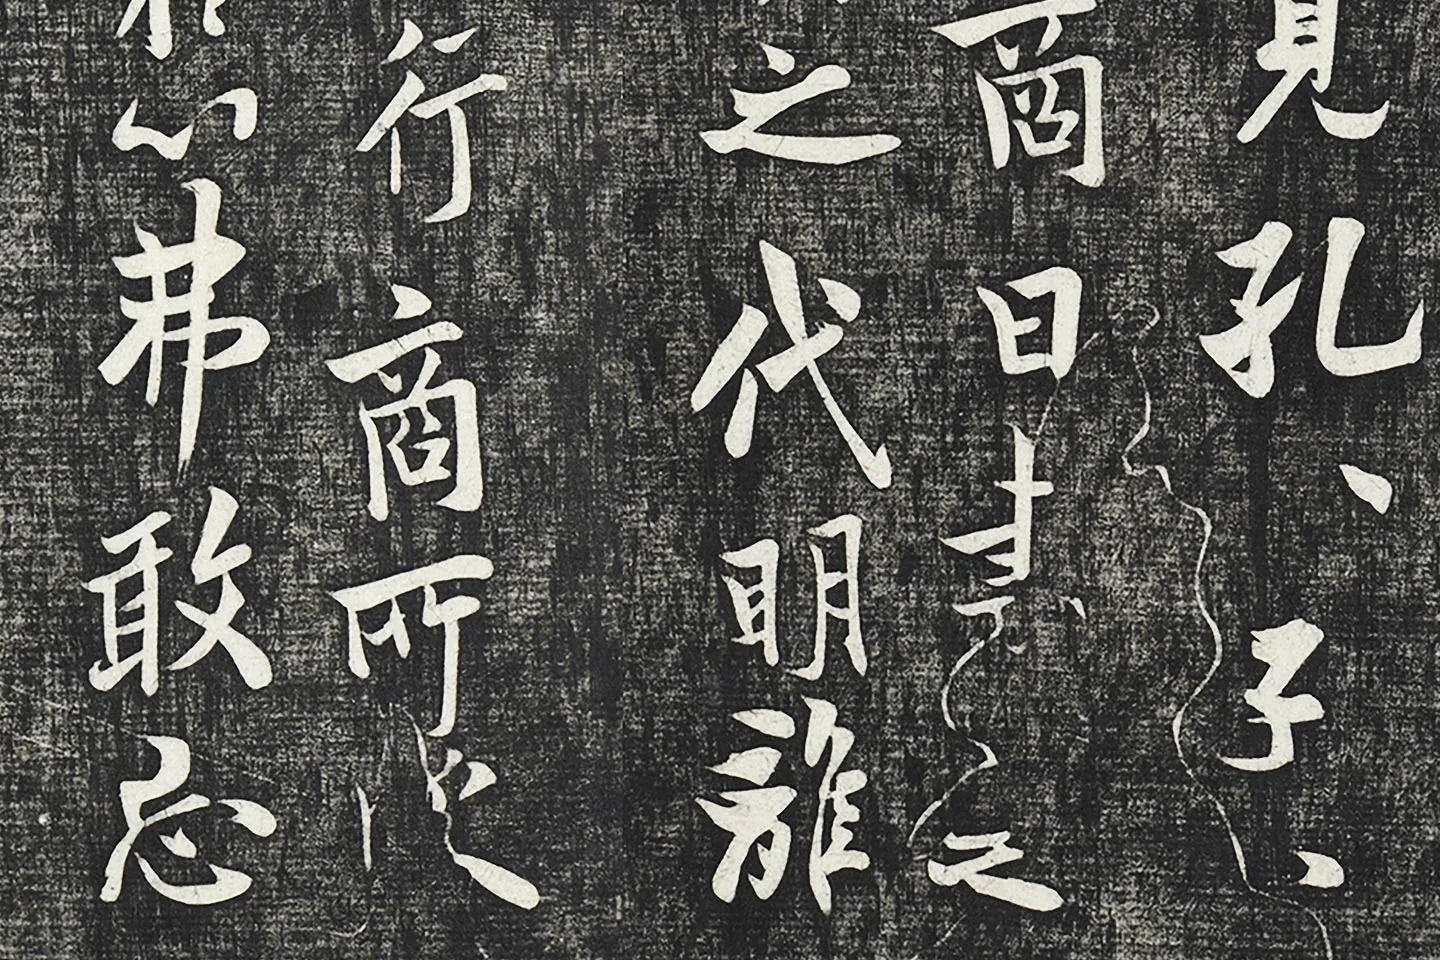 見孔、子、
商曰書之
之代明離
行商所受
於心弗敢忘